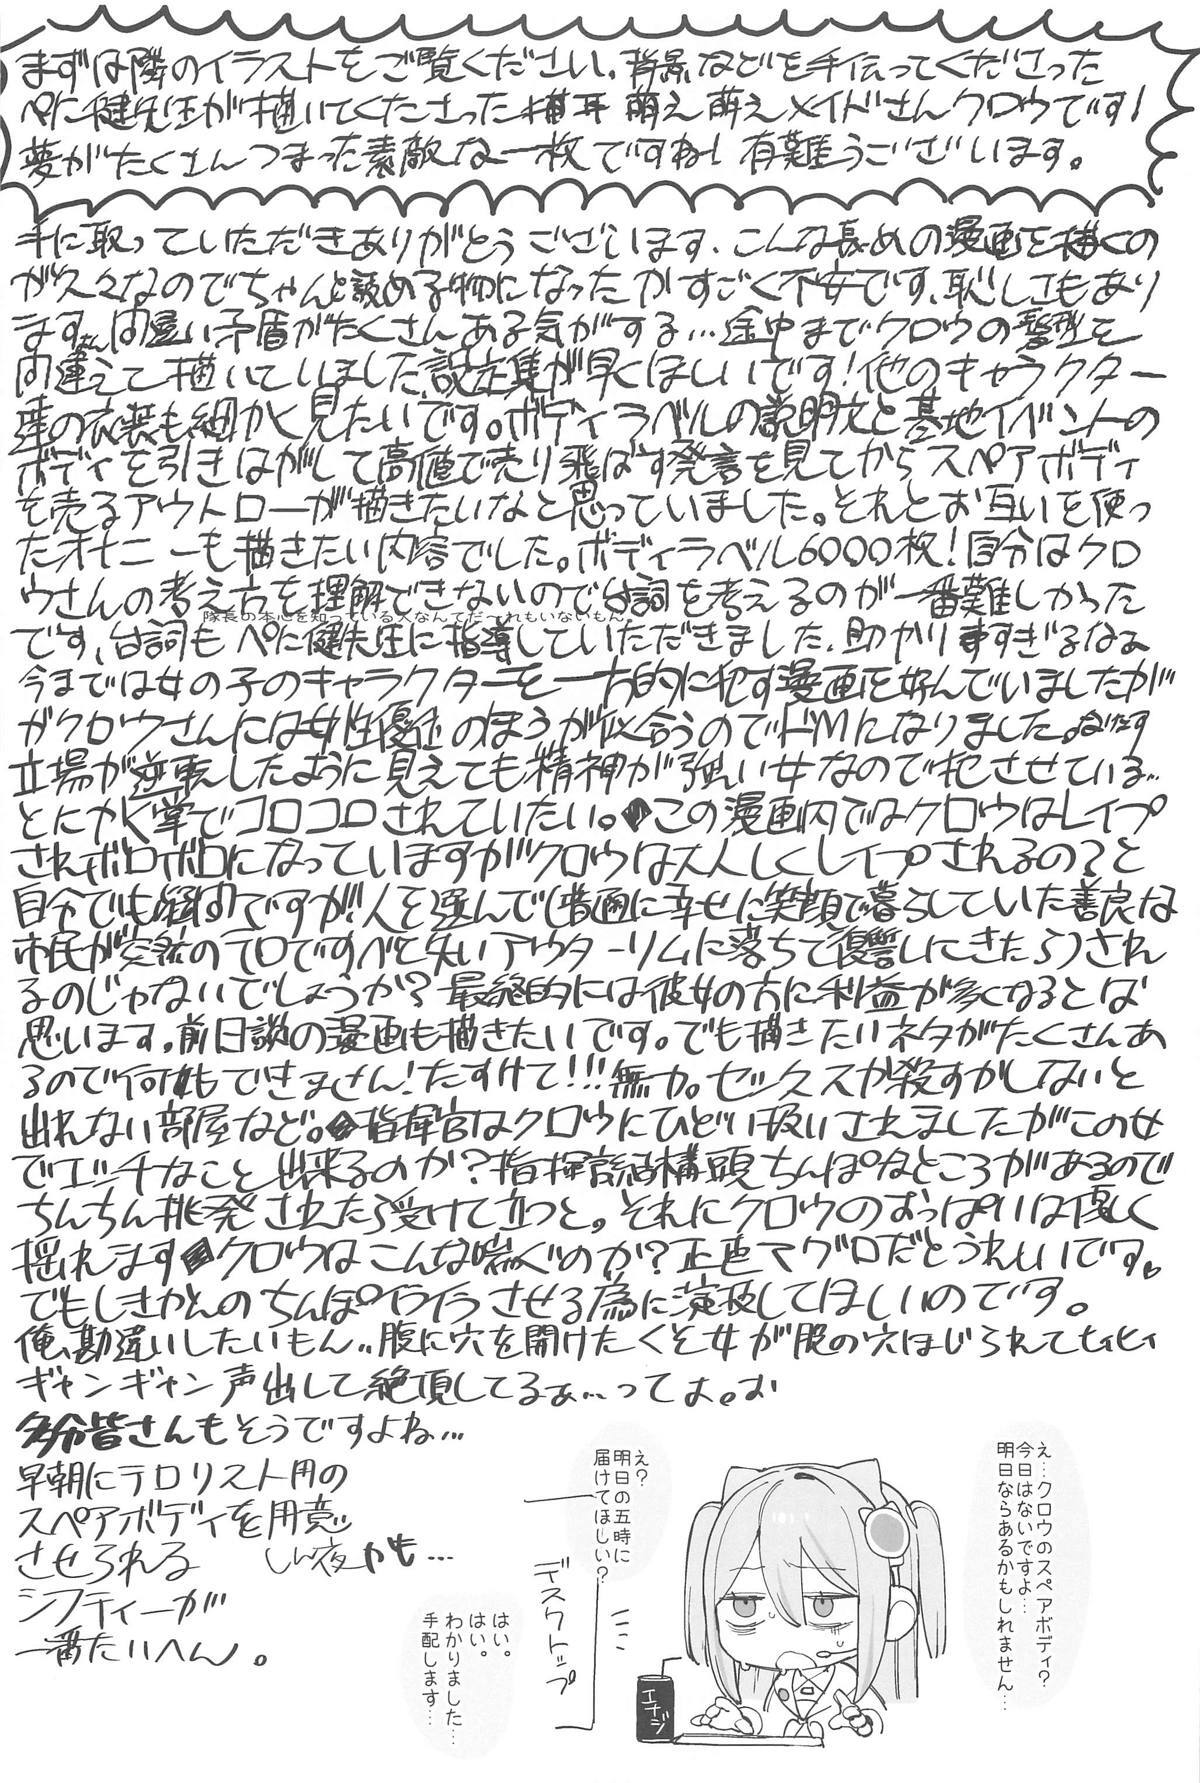 まずは隣のイラストをご覧ください。背景などを手伝ってくださった
ぺに健先生が描いてくださった猫耳 萌え萌えメイドさんクロウです!
夢がたくさんつまった素敵な一枚ですね! 有難うございます。
手に取っていただきありがとうございます、こんな長めの漫画を描くの
が久々なのでちゃんと読める物になったかすごく不安です、恥しさもあり
ます 間違い矛盾がたくさんある気がする…途中までクロウの髪型を
間違えて描いていました設定集が早くほしいです!他のキャラクター
達の衣装も細かく見たいです。ボディラベルの説明文と基地イベントの
ボディを引きはがして高値で売り飛ばす発言を見てからスペアボディ
を売るアウトローが描きたいなと思っていました。それとお互いを使っ
たオナニーも描きたい内容でした。ボディラベル6000枚!自分はクロ
ウさんの考え方を理解できないので台詞を考えるのが一番難しかった
隊長の本心を知っている人なんてだーれもいないもん。
です、台詞もぺに健先生に指導していただきました、助かりますすぎるなぁ
今までは女の子のキャラクターを一方的に犯す漫画を好んでいましたが
がクロウさんには女性優位のほうが似合うのでドMになりました。
立場が逆転したように見えても精神が強い女なので犯させている…
とにかく掌でコロコロされていたい。この漫画内ではクロウはレイプ
されボロボロになっていますがクロウは大人しくレイプされるの?と
自分でも疑問ですが!人を選んで(普通に幸せに笑顔で暮らしていた善良な
市民が突然のテロですべて失いアウターリムに落ちて復讐しにきたら)され
るのじゃないでしょうか?最終的には彼女の方に利益が多くなるとは
思います。前日談の漫画も描きたいです。でも描きたいネタがたくさんあ
るので何もできません!たすけて!!!無力。セックスか殺すかしないと
出れない部屋など。指揮官はクロウにひどい扱いされましたがこの女
でエッチなこと出来るのか?指揮官結構頭ちんぽなところがあるので
ちんちん挑発されたら受けて立つと。それにクロウのおっぱいは優しく
揺れます クロウはこんな喘ぐのか?正直マグロだとうれしいです。
でもしきかんのちんぽイライラさせる為に演技してほしいのです。
俺、勘違いしたいもん..腹に穴を開けたくそ女が股の穴ほじられてヒィヒィ
ギャンギャン声出して絶頂してるぁ…ってよ。お
多分皆さんもそうですよね…
早朝にテロリスト用の
スペアボディを用意
させられる しん夜かも…
シフティーが
一番たいへん。
え…クロウのスペアボディ?
今日はないですよ…
明日ならあるかもしれません…
え?
明日の五時に
届けてほしい?
デスクトップ
はい。
はい。
わかりました…
手配します…
エナジ